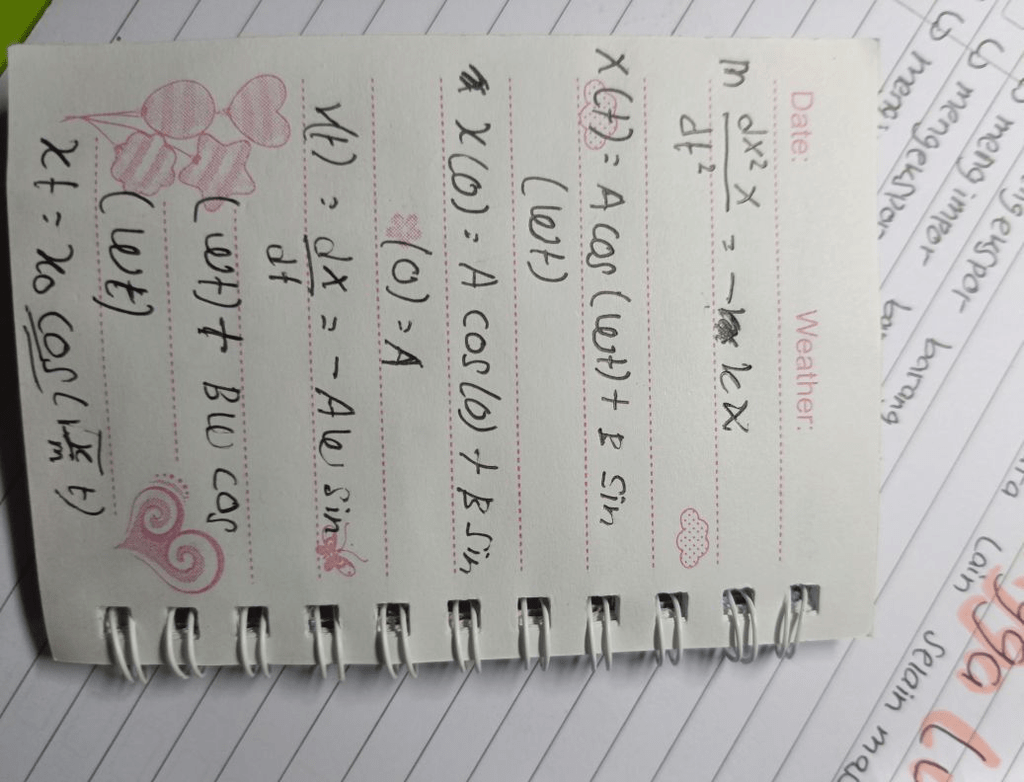 Date: Weather:
m dx²x/dt² = -kx
x(t) = A cos (wt) + B sin
(wt)
x(0) = A cos(0) + B sin
(0) = A
v(t) = dx/dt = -Aw sin
(wt) + Bw cos
(wt)
xt = x0 cos(√k/m t)
mengekspor
mengimpor barang
mengekspor
lain
selain